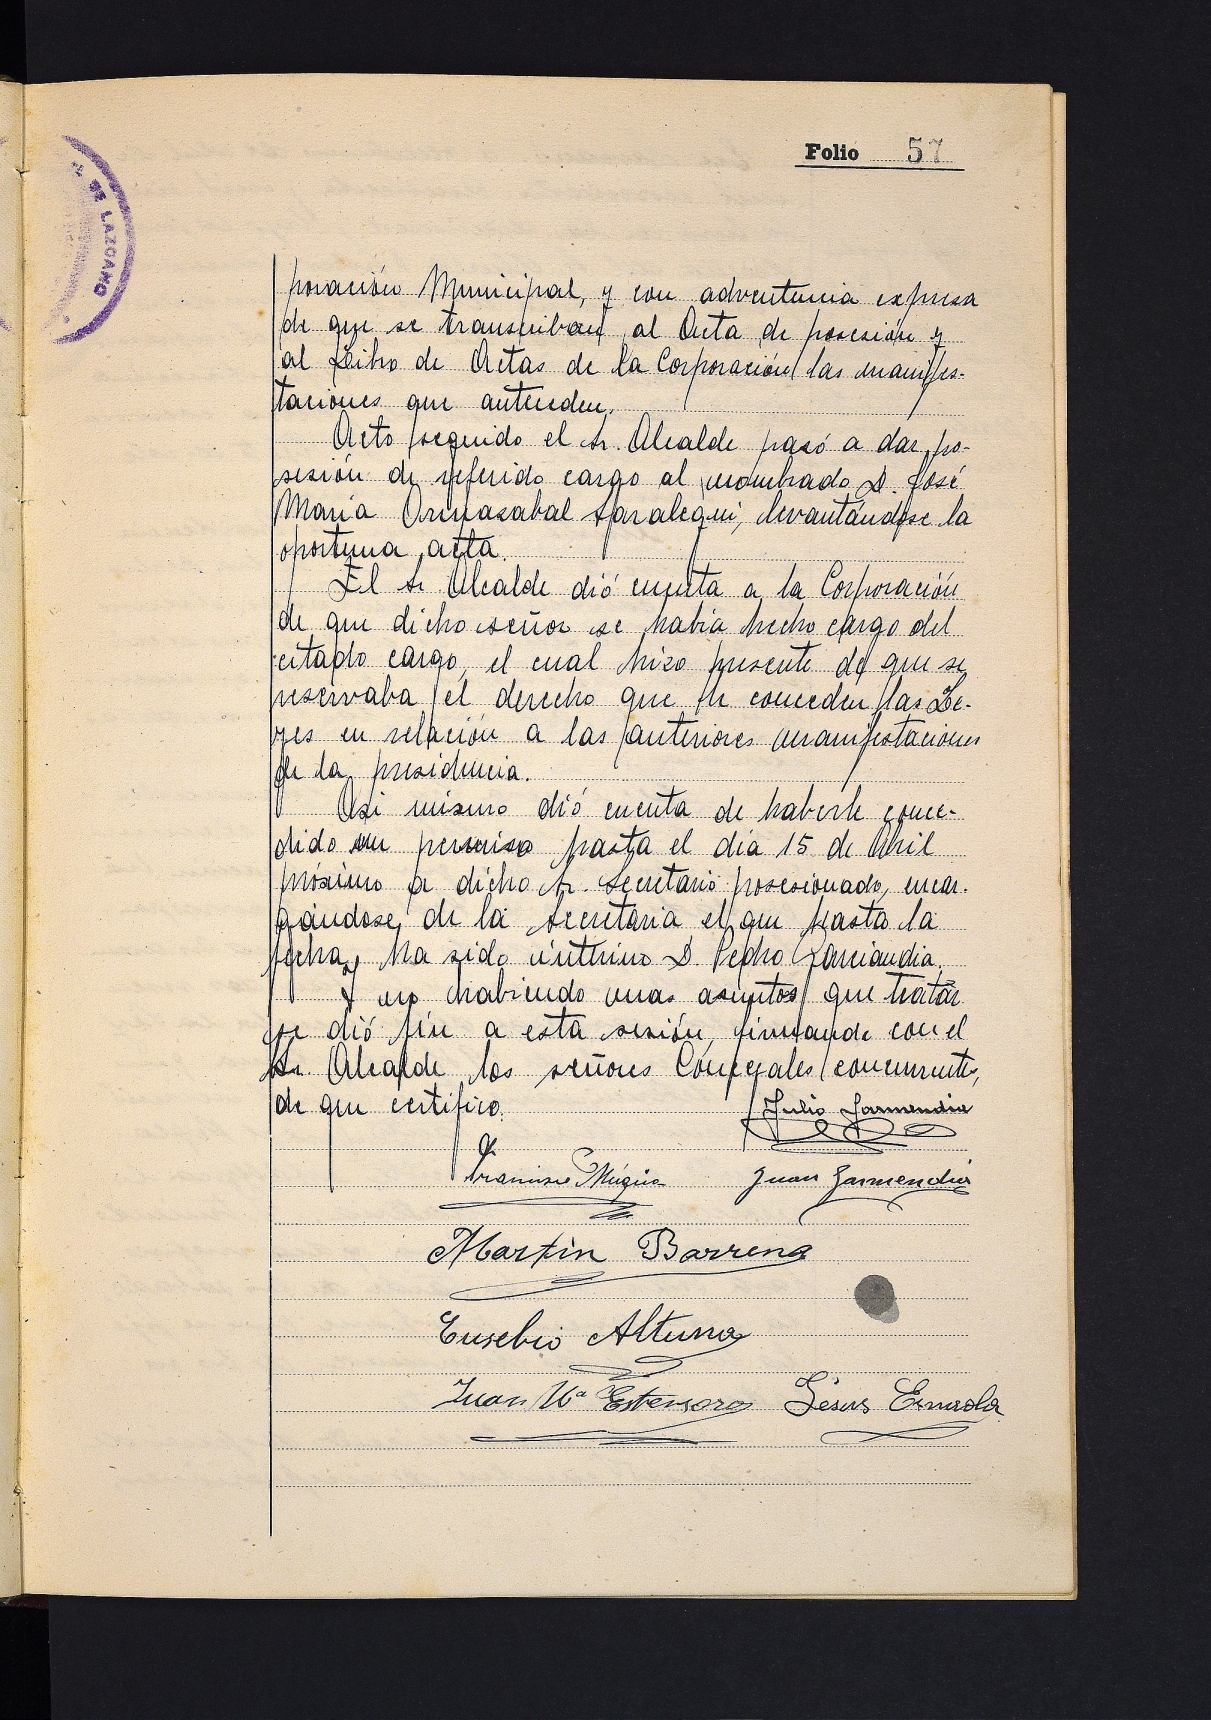 Folio 57
DE LAZCANO
poración Municipal, y con advertencia expresa
de que se transcriban al Acta de posesión y
al Libro de Actas de la Corporación las manifes-
taciones que anteceden.
Acto seguido el Sr. Alcalde pasó a dar po-
sesión de referido cargo al nombrado D. José
María Ormazabal Saralegui, levantándose la
oportuna acta.
El Sr Alcalde dió cuenta a la Corporación
de que dicho señor se había hecho cargo del
citado cargo, el cual hizo presente de que se
reservaba el derecho que le conceden las Le-
yes en relación a las anteriores manifestaciones
de la presidencia.
Asi mismo dió cuenta de haberle conce-
dido un permiso hasta el día 15 de Abril
próximo a dicho Sr. Secretario posesionado, encar-
gándose de la Secretaria el que hasta la
fecha, ha sido interino D. Pedro Garciandia.
Y no habiendo mas asuntos que tratar
se dió fin a esta sesión, firmando con el
Sr. Alcalde los señores Concejales concurrentes,
de que certifico.
Julio Garmendia
Francisco Múgica Juan Garmendia
Martín Barrena
Eusebio Altuna
Juan Mª Estensoro Jésus